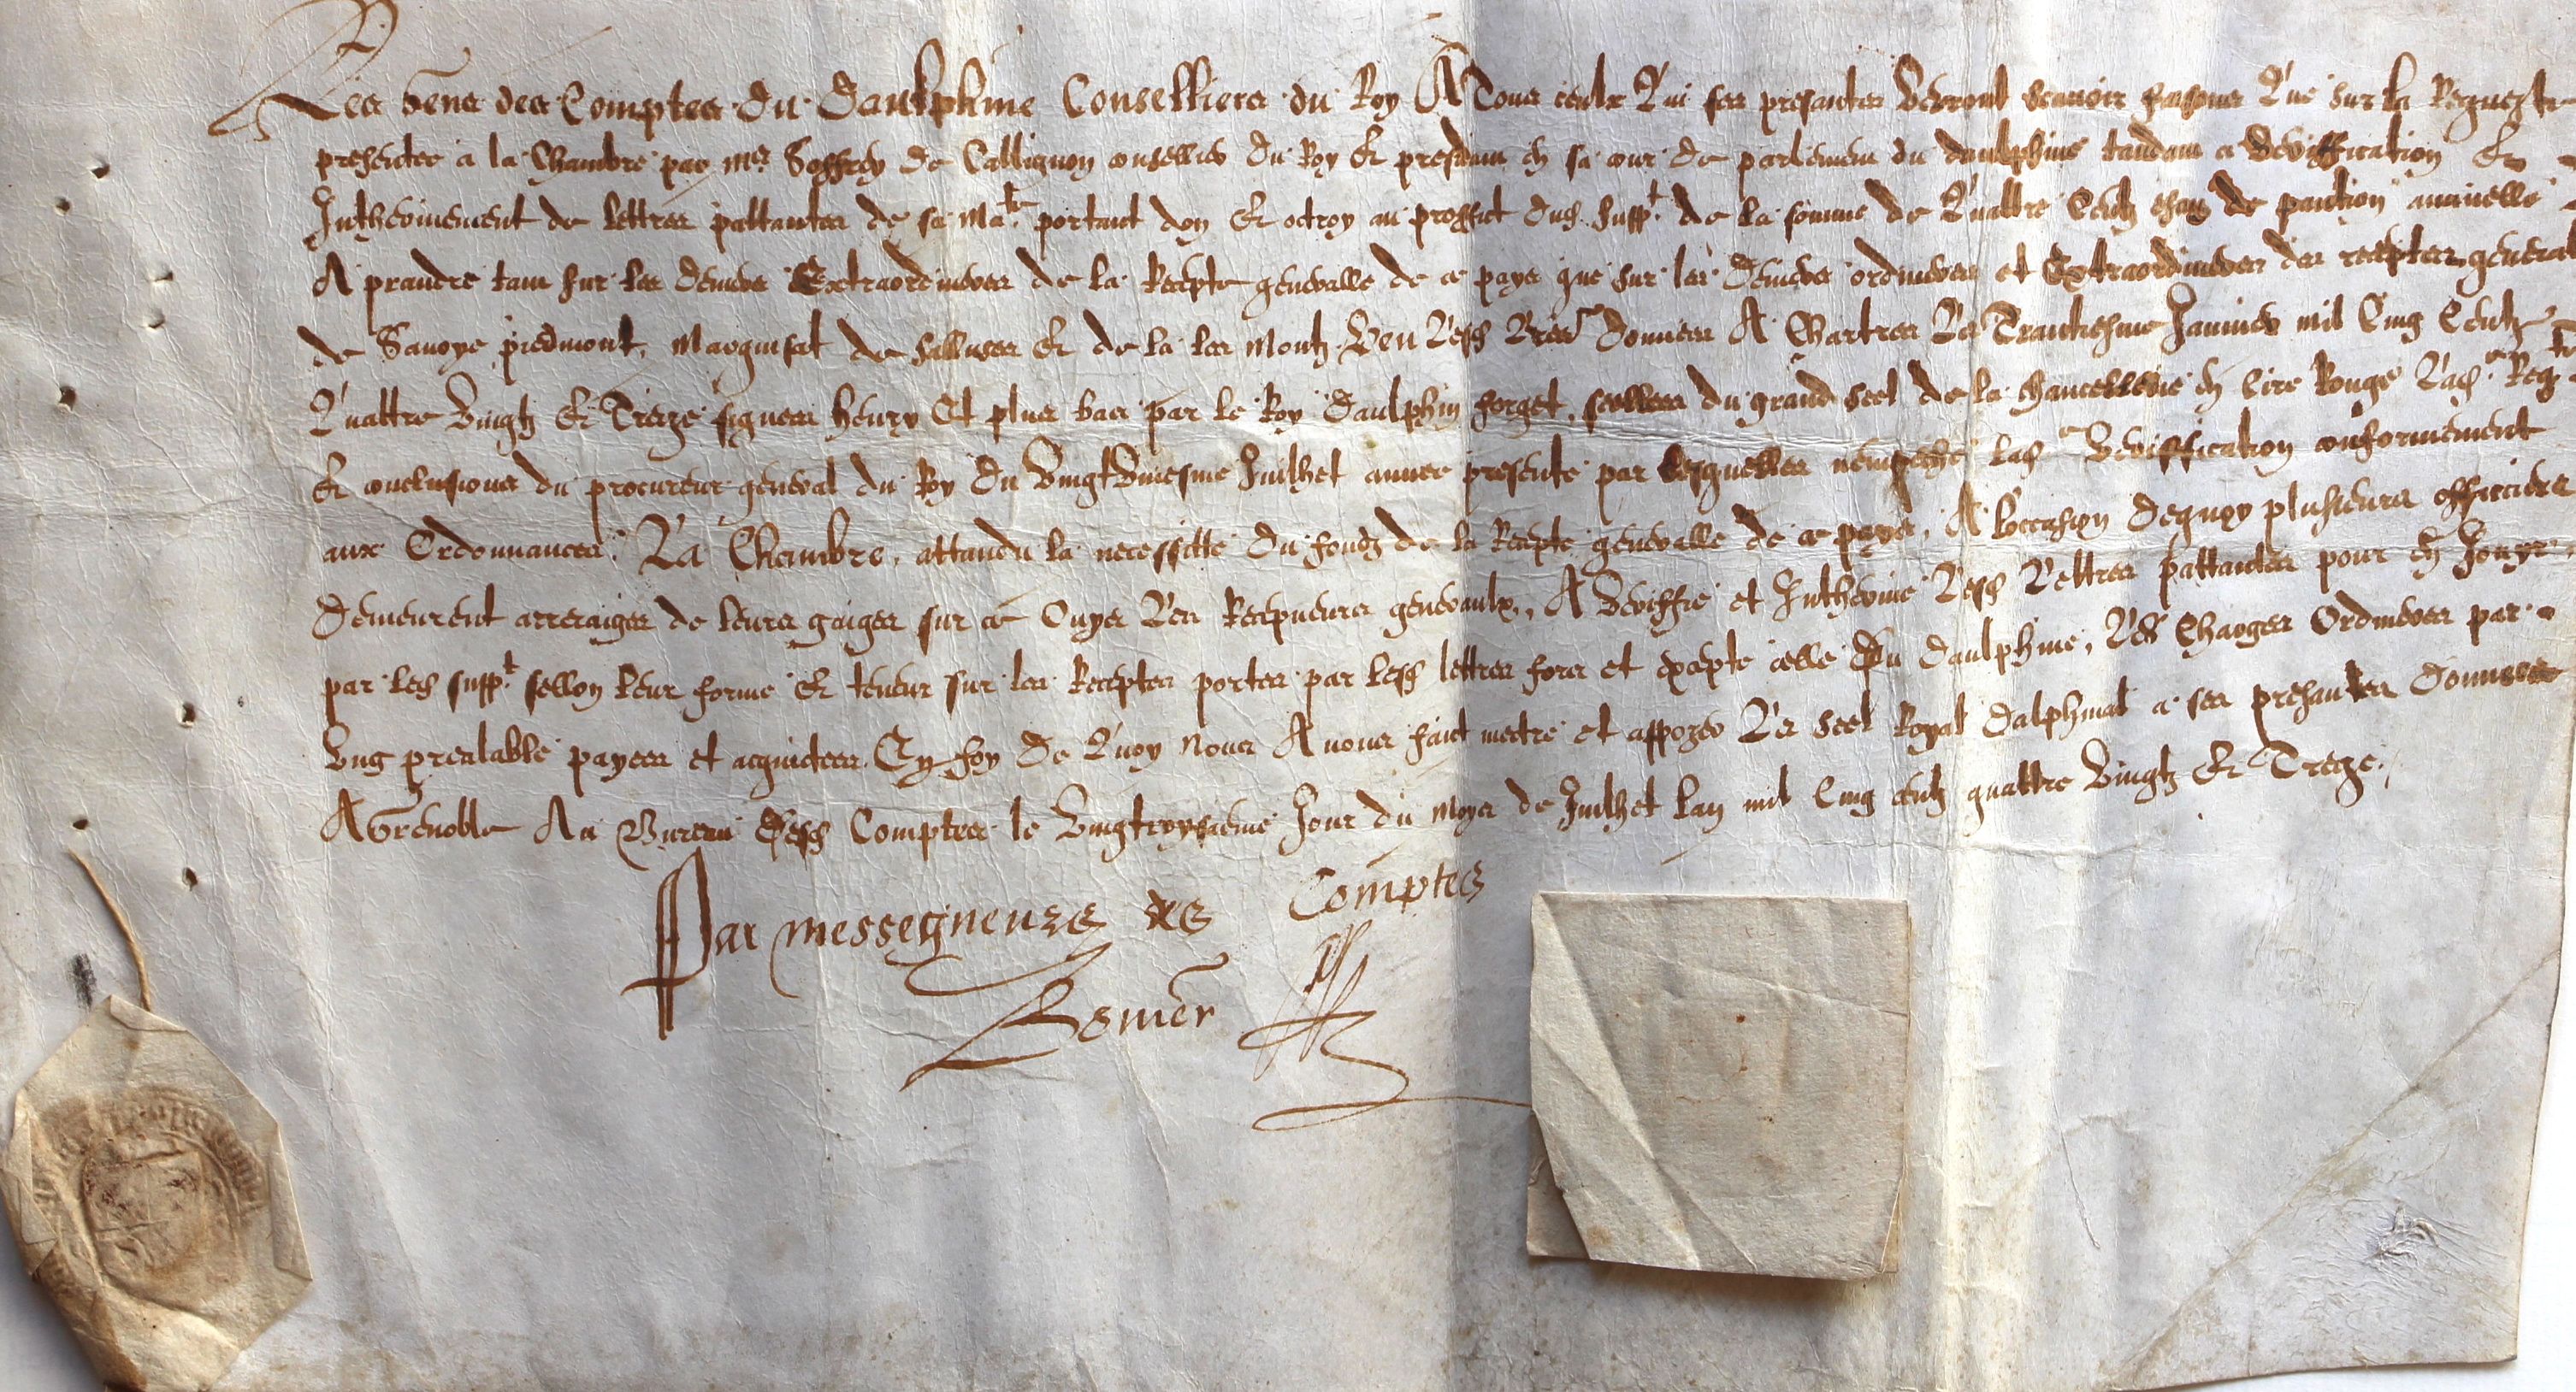 Les Gens des Comptes du Daulphine Conselliers du Roy A Tous ceulx Qui ses presantes Verront scavoir faisons Que sur la Requeste
presentee a la Chambre par mre Soffrey de Callignon conseller du Roy & president en sa cour de parlement du daulphine tandant a Veriffication &
Intherinement de lettres pattantes de sa Mate portant don & octroy au proffict dud suppt de la somme de Quattre Centz escus de pantion annuelle
A prandre tant sur les deniers Extraordineres de la Recepte generalle de ce pays que sur les deniers ordineres et Extraordineres des receptes general
de Savoye piedmont, Marquisat de Salluces & de la les montz. Veu Lesd Lres donnees A Chartres Le Trantiesme Janvier mil Cinq Centz
Quattre Vingtz & Treize signees henry Et plus bas par le Roy Daulphin forget, scellees du grand scel de la chancellerie en Cire Rouge Lad Reqte
& conclusions du procureur general du Roy du Vingt Uniesme Juilhet annee presente par lesquelles nempeche lad Veriffication conformement
aux Ordonnances. La Chambre, attandu la necessitte du fondz de la Recepte generalle de ce pays, A loccasion dequoy plusieurs officiers
demeurent arreraiges de leurs gaiges sur ce Ouys Les Recepveurs generaulx, A Veriffie et Intherine Lesd Lettres pattantes pour en Jouyr
par led suppt sellon leur forme & teneur sur les Receptes portees par lesd lettres fors et excepte celle du daulphine, Les Charges Ordineres par
ung prealable payees et acquictees. En foy de Quoy Nous Avons faict mectre et appozer Le scel Royal dalphinal a ses presantes donnees
A Grenoble Au Bureau desd Comptes le Vingtroysieme Jour du moys de Juilhet lan mil Cinq centz quattre Vingtz & Treze.
Par messegneurs des Comptes